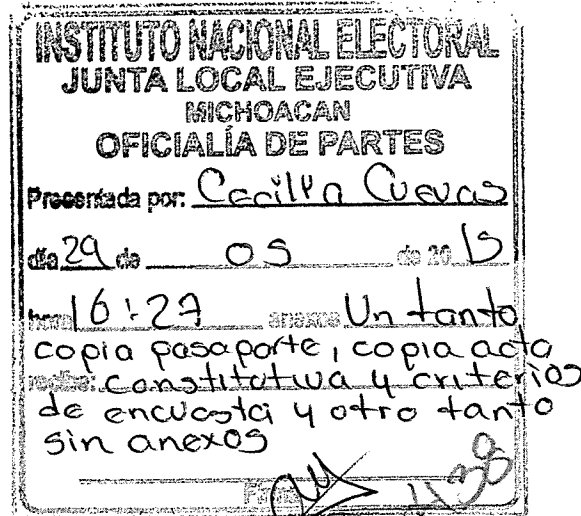 INSTITUTO NACIONAL ELECTORAL
JUNTA LOCAL EJECUTIVA
MICHOACAN
OFICIALÍA DE PARTES
Presentada por: Cecilia Cuevas
día 29 de 05 de 20 15
hora 16:27 anexos Un tanto
copia pasaporte, copia acta
recibe: constitutiva y criterios
de encuesta y otro tanto
sin anexos
Firma